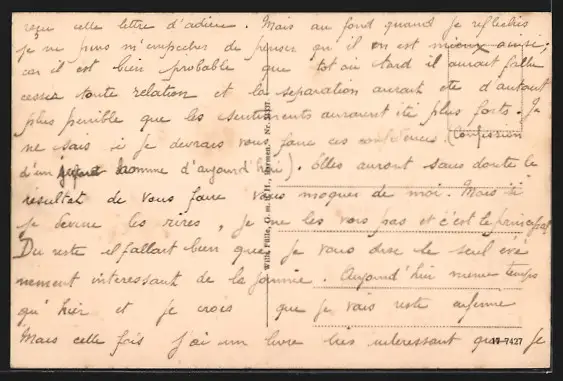 reçu cette lettre d'adieu. Mais au fond quand je réfléchis
je ne puis m'empêcher de penser qu'il en est mieux ainsi;
car il est bien probable que tot ou tard il aurait fallu
cesser toute relation et la séparation aurait été d'autant
plus pénible que les sentiments auraient été plus forts. Je
ne sais si je devrais vous faire ces confidences. (Confession
d'un homme d'aujourd'hui). Elles auront sans doute le
résultat de vous faire vous moquer de moi. Mais si
je devine les rires, je ne les vois pas et c'est le principal
Du reste il fallait bien que je vous dise le seul évé
nement interessant de la journée. Aujourd'hui meme temps
qu'hier et je crois que je vais reste
Mais cette fois j'ai un livre très interessant que je
Wilh. Fülle, G. m. b. H., Barmen. Nr.
17-7427